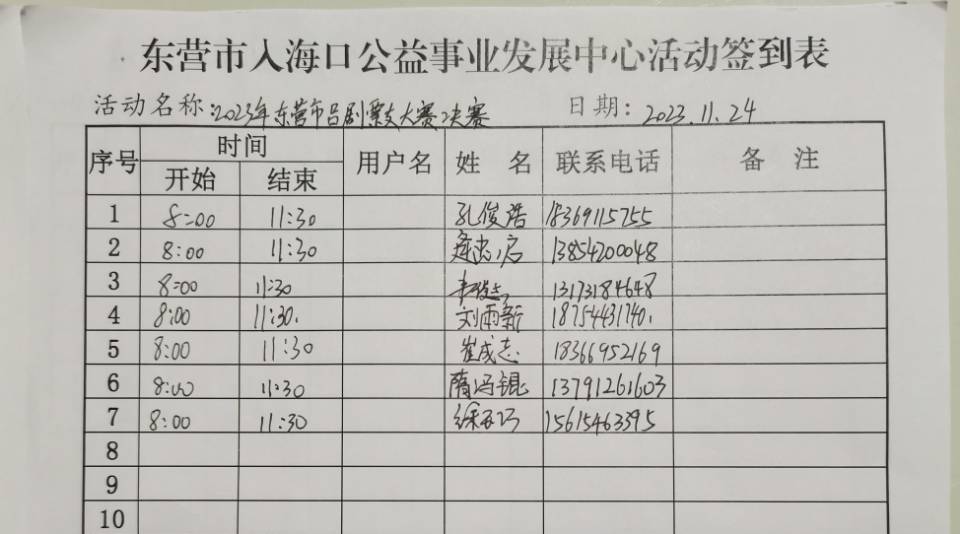 东营市入海口公益事业发展中心活动签到表
活动名称:2023年东营市吕剧票友大赛决赛 日期: 2023.11.24
序号 时间 用户名 姓 名 联系电话 备 注
开始 结束
1 8:00 11:30 孔俊浩 18369115755
2 8:00 11:30 13854200048
3 8:00 11:30 13173184648
4 8:00 11:30. 刘雨新 18754431740.
5 8:00 11:30 崔成志 18366952169
6 8:00 11:30 隋冯锟 13791261603
7 8:00 11:30 15615463395
8
9
10